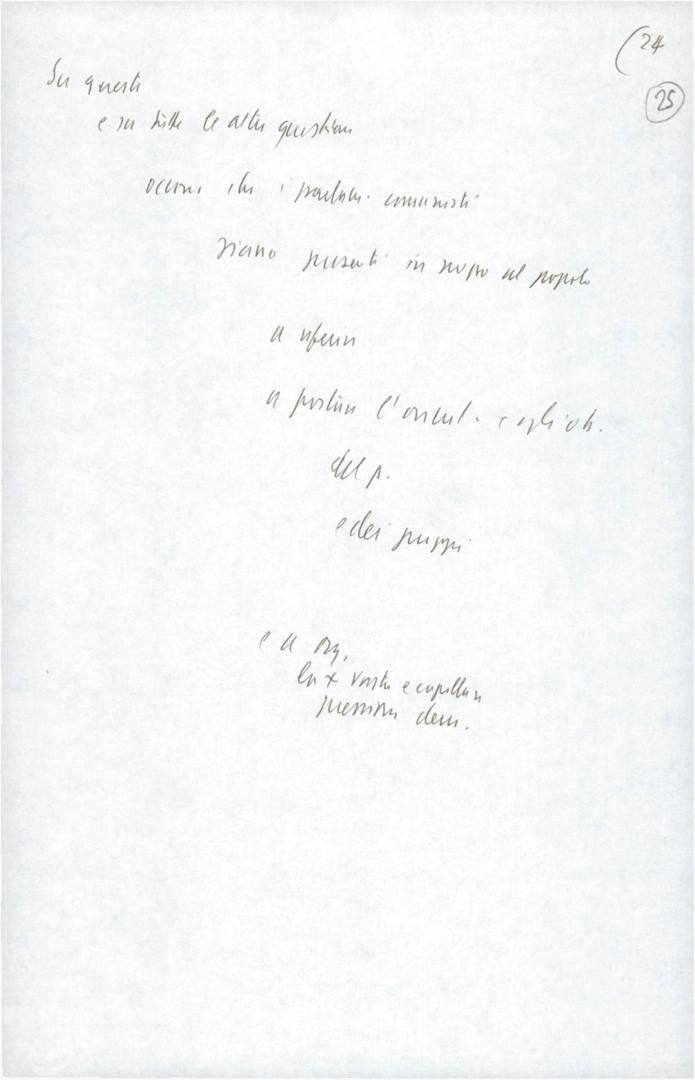 (24
25
Su questi
e su tutte le altre questioni
occorre che i parlam. comunisti
siano presenti in mezzo al popolo
a riferire
a portare l'orient. e gli ob.
del p.
e dei gruppi
e a org.
la + vasta e capillare
pressione dem.